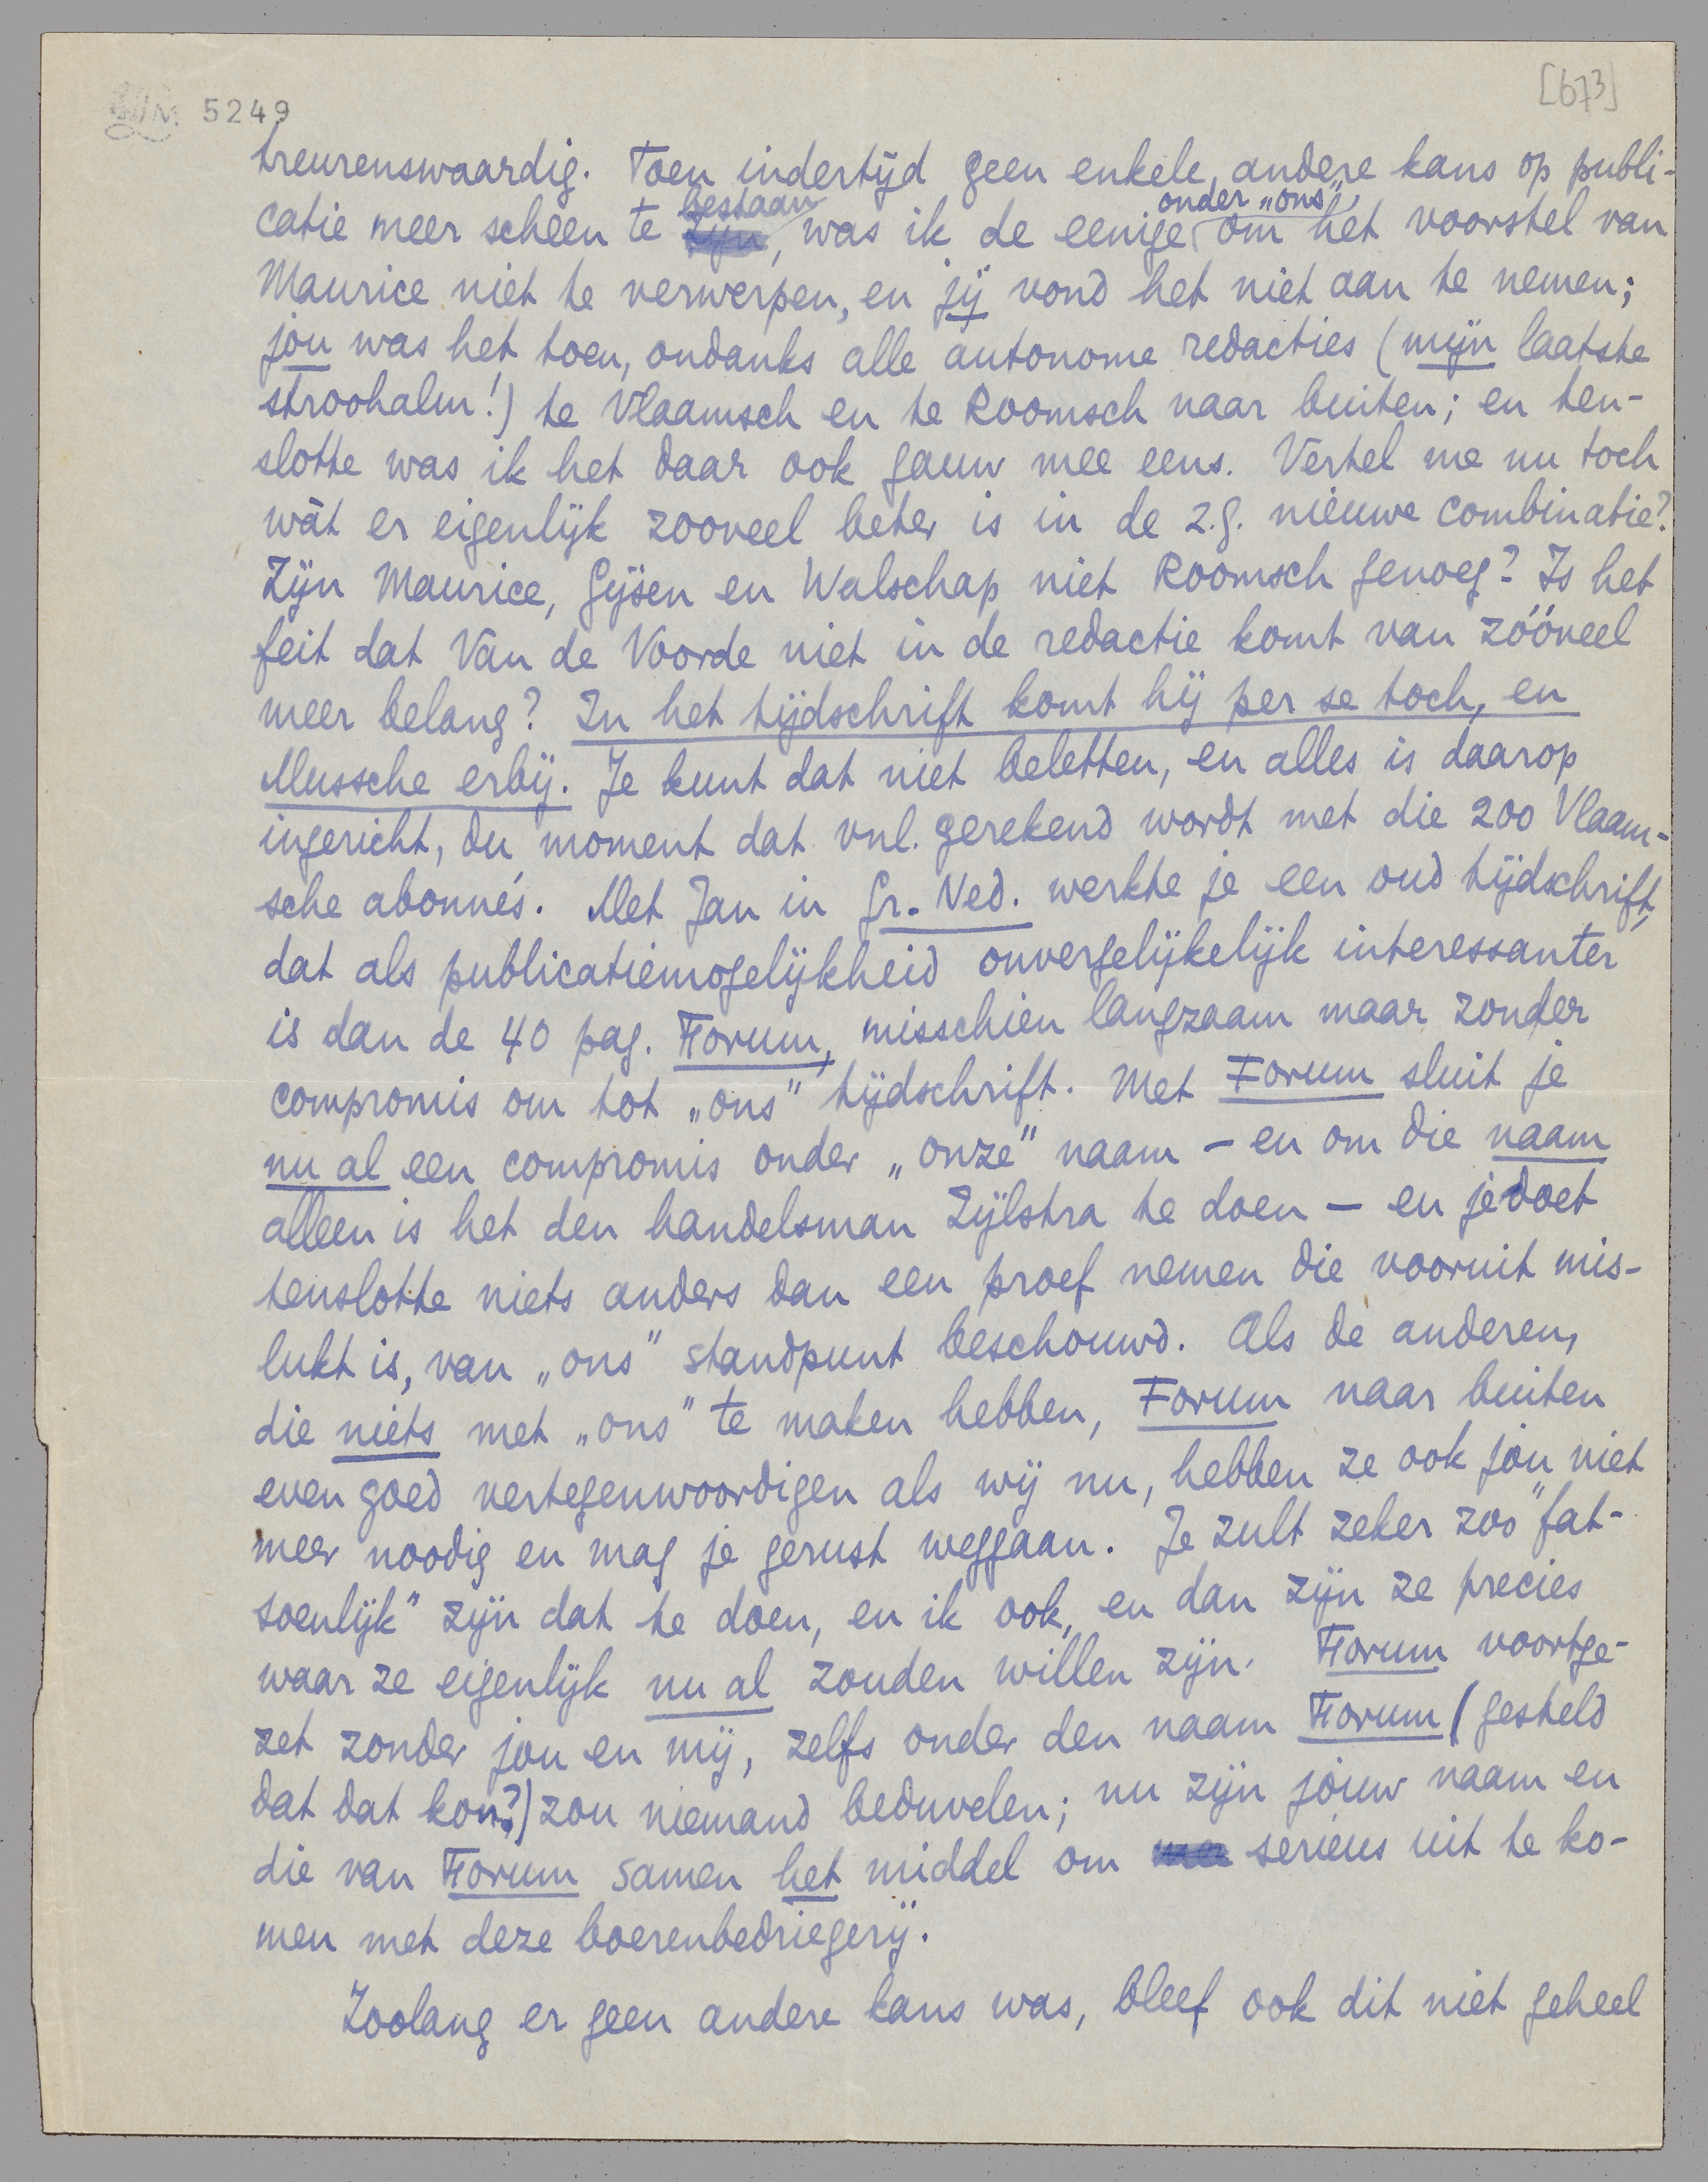 5249
[673]
treurenswaardig. Toen indertijd geen enkele andere kans op publi-
catie meer scheen te bestaan, was ik de eenige onder „ons" om het voorstel van
Maurice niet te verwerpen, en jij vond het niet aan te nemen;
jou was het toen, ondanks alle autonome redacties (mijn laatste
stroohalm!) te Vlaamsch en te Roomsch naar buiten; en ten-
slotte was ik het daar ook gauw mee eens. Vertel me nu toch
wàt er eigenlijk zooveel beter is in de z.g. nieuwe combinatie?
Zijn Maurice, Gijsen en Walschap niet Roomsch genoeg? Is het
feit dat Van de Voorde niet in de redactie komt van zóóveel
meer belang? In het tijdschrift komt hij per se toch, en
Mussche erbij. Je kunt dat niet beletten, en alles is daarop
ingericht, du moment dat vnl. gerekend wordt met die 200 Vlaam-
sche abonné's. Met Jan in Gr. Ned. werkte je een oud tijdschrift,
dat als publicatiemogelijkheid onvergelijkelijk interessanter
is dan de 40 pag. Forum, misschien langzaam maar zonder
compromis om tot „ons" tijdschrift. Met Forum sluit je
nu al een compromis onder „onze" naam – en om die naam
alleen is het den handelsman Zijlstra te doen – en je doet
tenslotte niets anders dan een proef nemen die vooruit mis-
lukt is, van „ons" standpunt beschouwd. Als de anderen,
die niets met „ons" te maken hebben, Forum naar buiten
even goed vertegenwoordigen als wij nu, hebben ze ook jou niet
meer noodig en mag je gerust weggaan. Je zult zeker zoo "fat-
soenlijk" zijn dat te doen, en ik ook, en dan zijn ze precies
waar ze eigenlijk nu al zouden willen zijn. Forum voortge-
zet zonder jou en mij, zelfs onder den naam Forum (gesteld
dat dat kon?) zou niemand beduvelen; nu zijn jouw naam en
die van Forum samen het middel om serieus uit te ko-
men met deze boerenbedriegerij.
Zoolang er geen andere kans was, bleef ook dit niet geheel